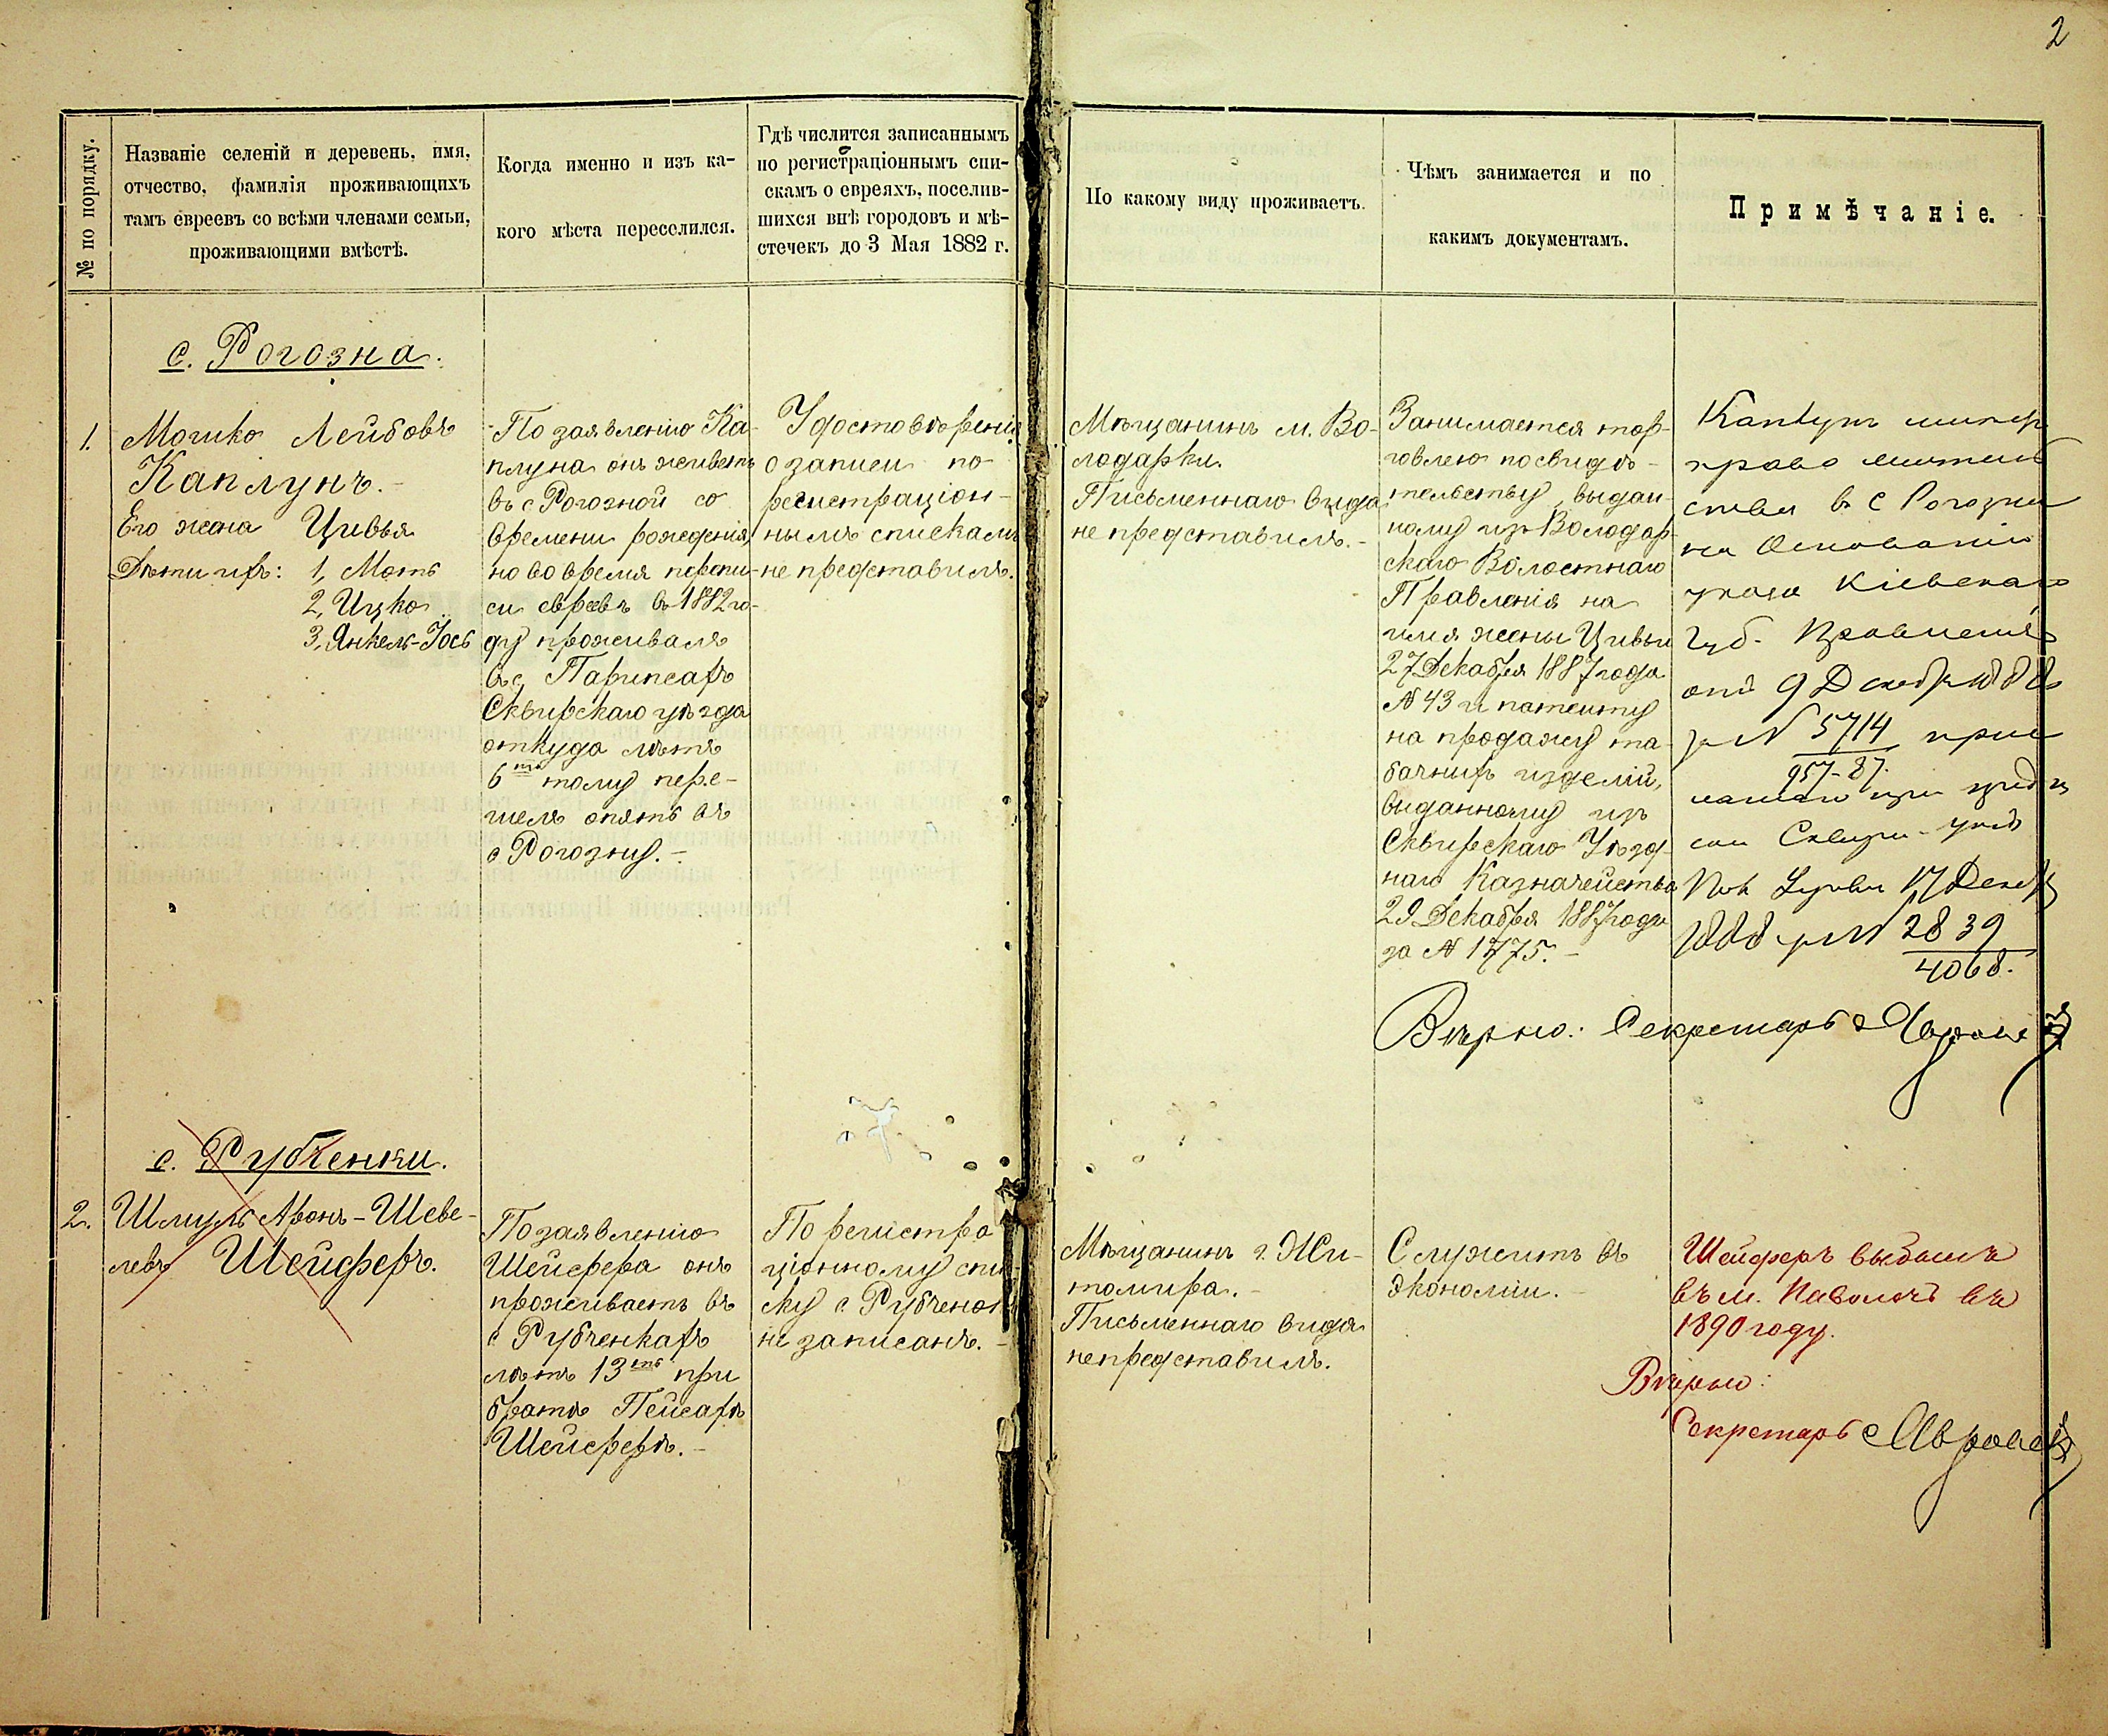 2
№ по порядку.
Названіе селеній и деревень, имя,
отчество, фамилія проживающихъ
тамъ евреевъ со всѣми членами семьи,
проживающими вмѣстѣ.
Когда именно и изъ ка-
кого мѣста переселился.
Гдѣ числится записаннымъ
по регистраціоннымъ спи-
скамъ о евреяхъ, поселив-
шихся внѣ городовъ и мѣ-
стечекъ до 3 Мая 1882 г.
По какому виду проживаетъ.
Чѣмъ занимается и по
какимъ документамъ.
Примѣчаніе.
с. Рогозна.
1.
Мошко Лейбовъ
Каплунъ.-
Его жена Цивья
Дѣти ихъ: 1, Моть
2, Ицко
3, Янкель-Іось
По заявленію Ка-
плуна онъ живетъ
въ с Рогозной со
времени рожденія,
но во время перепи-
си евреевъ въ 1882 го-
ду проживалъ
въ с. Парипсахъ
Сквирскаго уѣзда
откуда лѣтъ
6ть тому пере-
шелъ опять въ
с Рогозну.-
Удостовѣренія
о записи по
регистраціон-
нымъ спискамъ
не представилъ.
Мѣщанинъ м. Во-
лодарки.
Письменнаго вида
не представилъ.-
Занимается тор-
говлею по свидѣ-
тельству, выдан-
ному изъ Володар-
скаго Волостнаго
Правленія на
имя жены Цивьи
27 Декабря 1887 года
№ 43 и патенту
на продажу та-
бачныхъ изделій,
выданному изъ
Сквирскаго Уѣзд-
наго Казначейства
29 Декабря 1887 года
за № 1775.-
Каплунъ
право
въ с Рогозни
на Основаніи
указа Кіевскаго
Губ. Правленія
отъ 9 Декабря 1888
за № 5714
957-87.
при
Сквир. уѣзд
17 Декабр
1888 за № 2839
4068.
Вѣрно: Секретарь
с. Рубченки.
2.
Шмуль Аронъ-Шеве-
левъ Шейферъ.
По заявленію
Шейфера онъ
проживаетъ въ
с Рубченкахъ
лѣтъ 13ть при
братѣ Пейсахѣ
Шейферѣ.-
По регистра
ціонному спи
ску с. Рубченокъ
не записанъ.-
Мѣщанинъ г. Жи-
томира.-
Письменнаго вида
не представилъ.
Служитъ въ
Экономіи.-
Шейферъ выбылъ
въ м. Паволочь въ
1890 году.
Вѣрно:
Секретарь